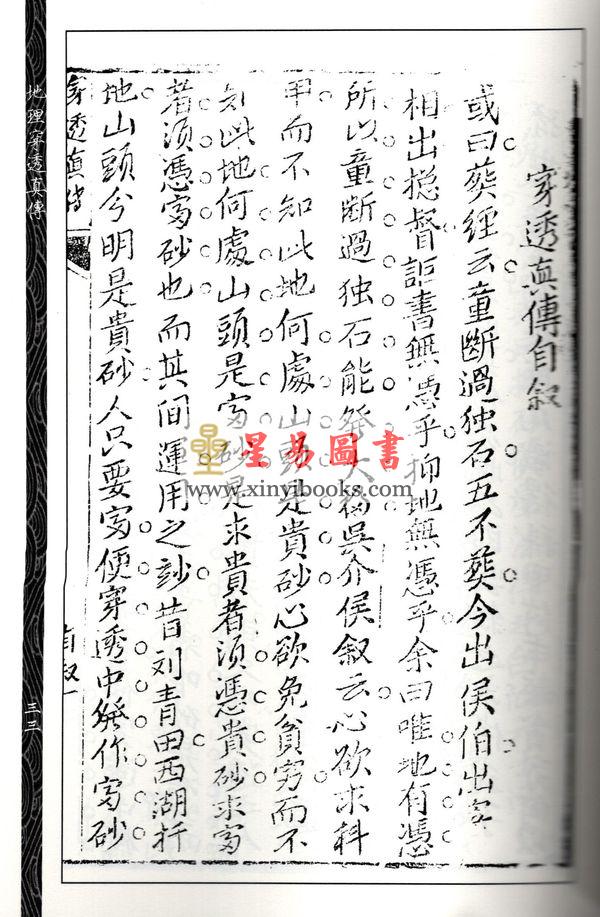 穿透真傳自叙
或曰葬經云童斷過独石五不葬今出侯伯出宰
相出揔督詎書無憑乎抑地無憑乎余曰唯地有憑
所以童斷過独石能發大福吳介侯叙云心欲求科
甲而不知此地何處山頭是貴砂心欲免貧穷而不
知此地何處山頭是富砂是求貴者須憑貴砂求富
者須憑富砂也而其间運用之訬昔刘青田西湖扦
地山頭分明是貴砂人只要富便穿透中發作富砂
穿透真傳
自叙一
地理穿透真傳
三三
星易圖書
www.xinyibooks.com